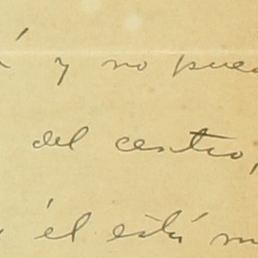 y no pued
del centro,
él está m